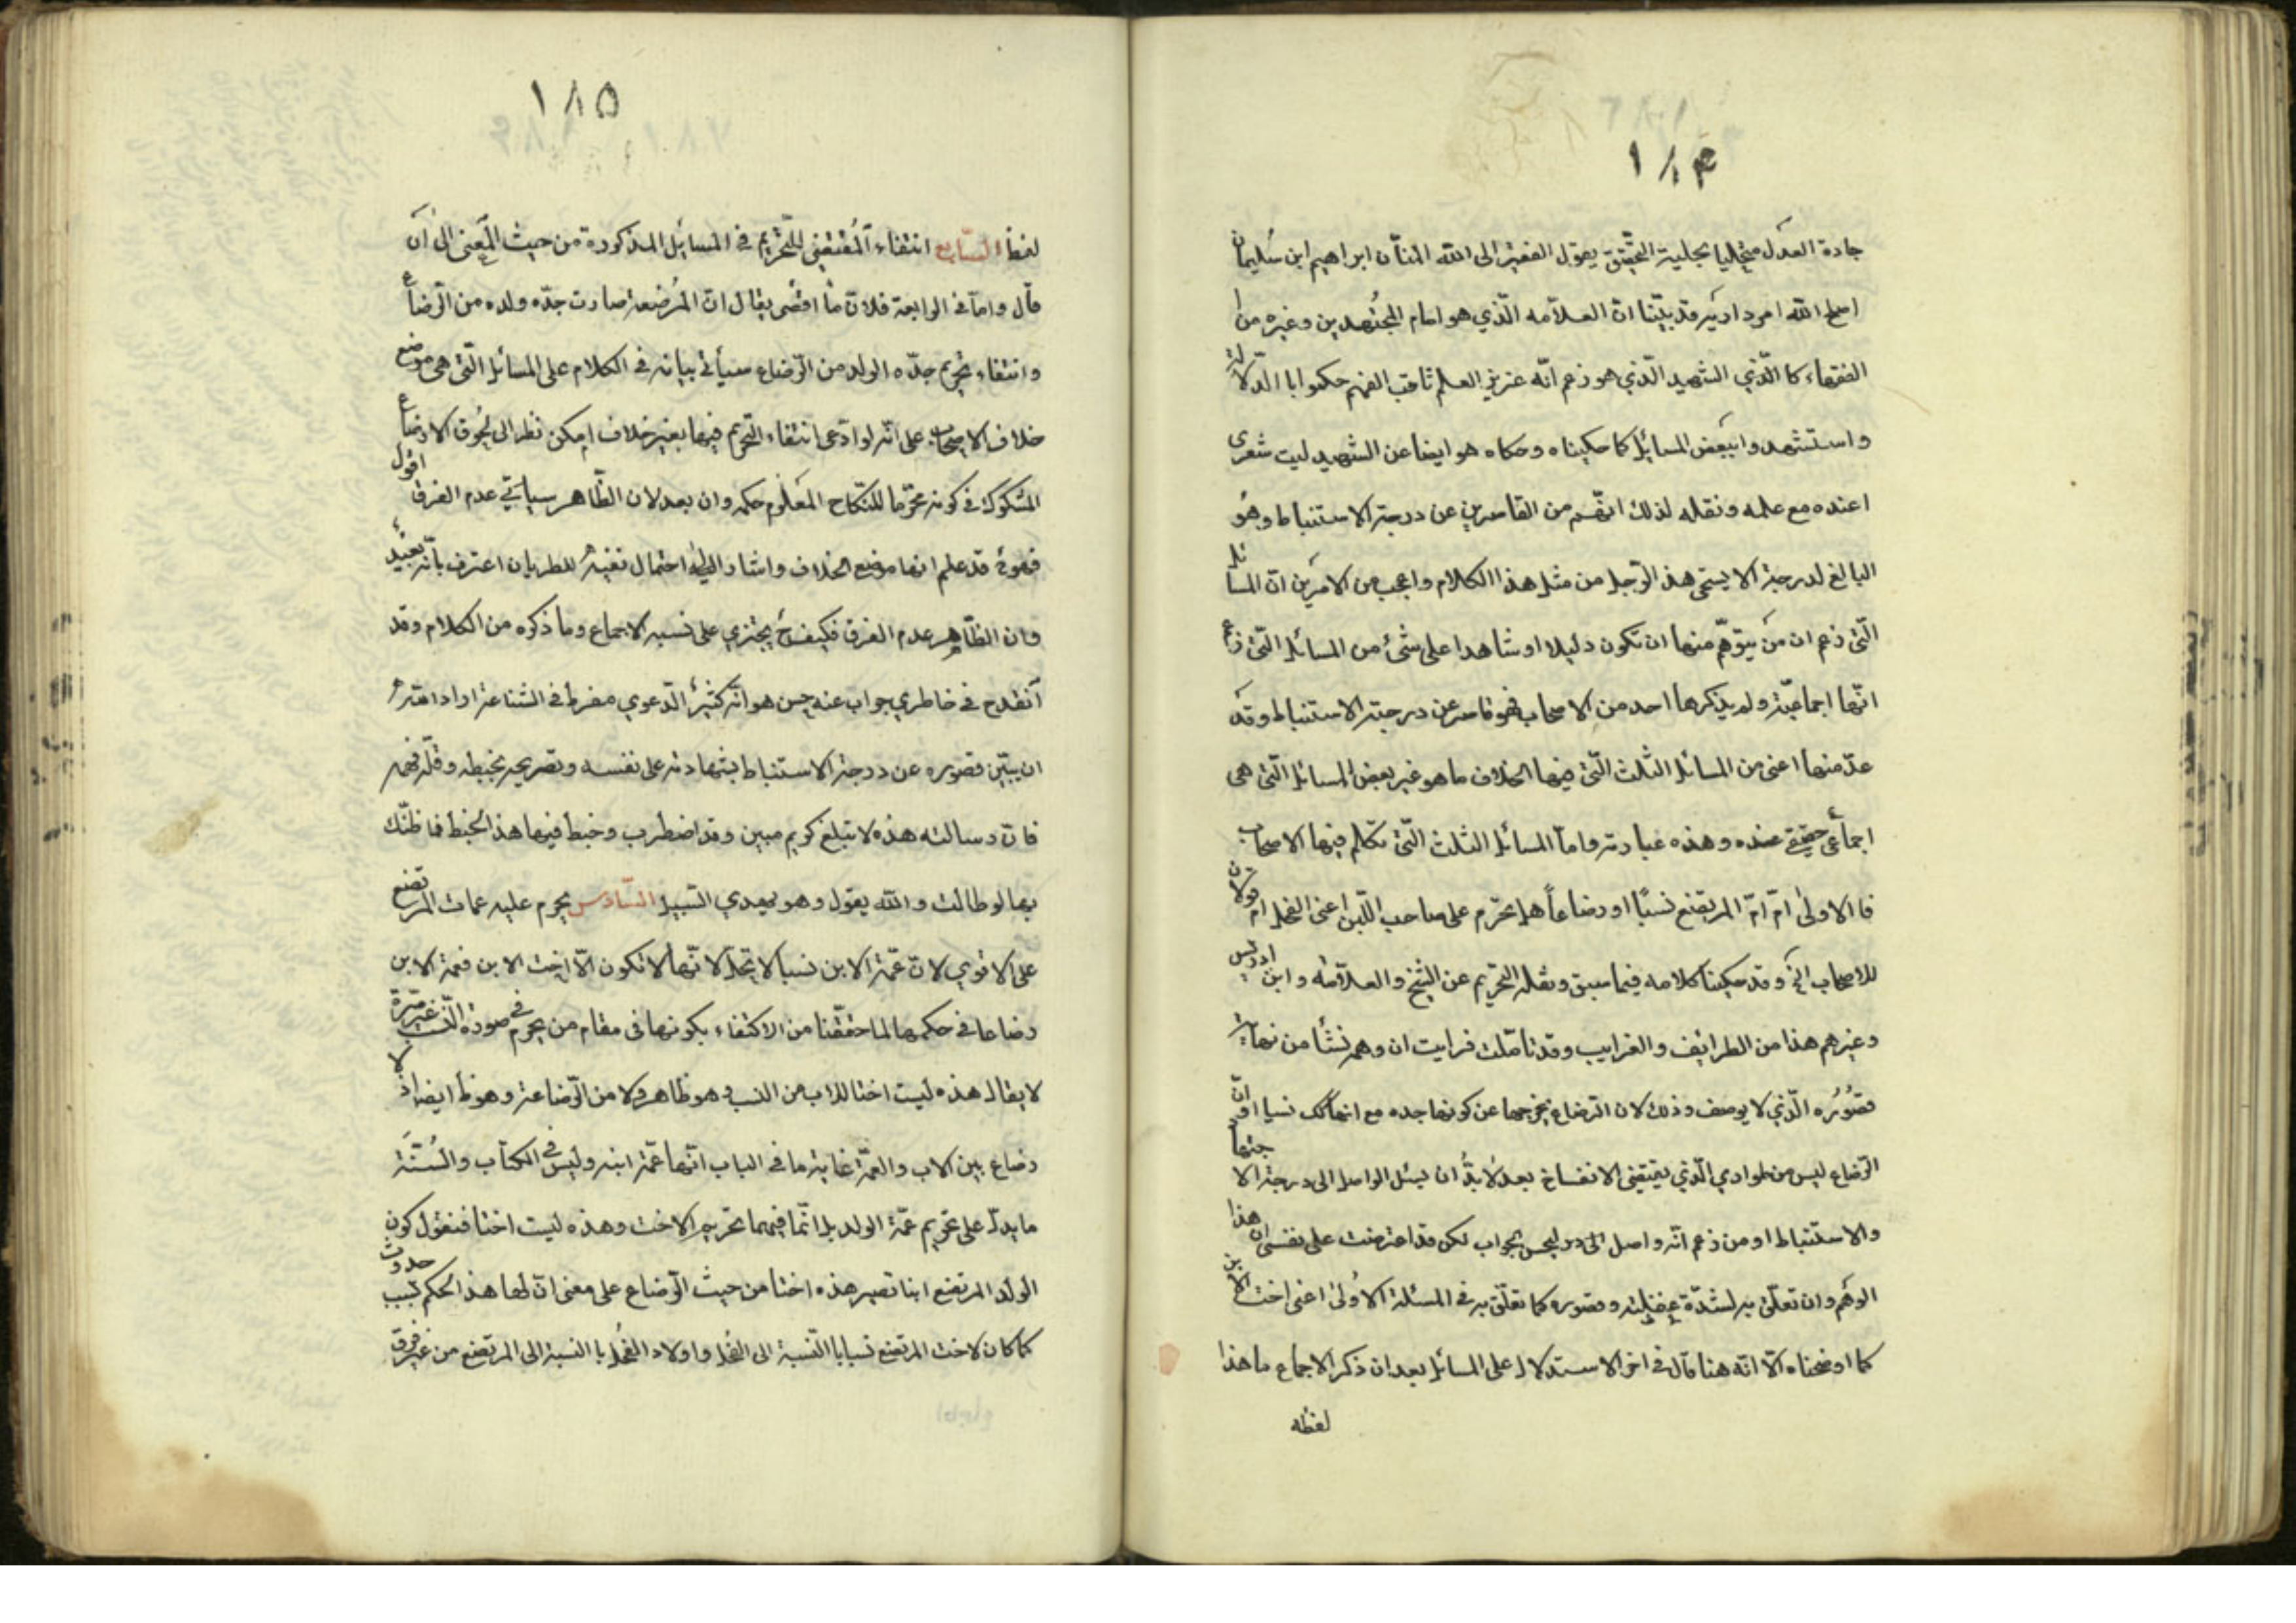 ١٨٤
جادة العدل متحليا بحلية التحقيق يقول الفقير الى الله المنان ابراهيم ابن سليمان
اصلح الله امر داريه قد بيّنا ان العلامه الّذي هو امام المجتهدين وغيره من
الفقهاء كا الّذي الشهيد الّذي هو زعم انّه عزيز العلم ثاقب الفهم حكموا با الدلالة
واستشهدوا ببعض المسائل كما حكيناه وحكاه هو ايضا عن الشهيد ليت شعرى
اعنده مع علمه ونقله لذلك انهم من القاصرين عن درجة الاستنباط وهو
البالغ لدرجة الا يستحى هذا الرّجل من مثل هذا الكلام واعجب من الامرين ان المسائل
الّتى زعم ان من يتوهّم منها ان تكون دليلا او شاهدا على شئ من المسائل الّتى زعم
انّها اجماعيّة ولم يذكرها احد من الاصحاب فهو قاصر عن درجة الاستنباط وقد
عدّ منها اعنى من المسائل الثلث الّتى فيها الخلاف ما هو غير بعض المسائل الّتى هى
اجماعى حقيقى عنده وهذه عبارته واما المسائل الثلث الّتى تكلم فيها الاصحاب
فا الاولى امّ امّ المرتضع نسبًا او رضاعاً هل تحرّم على صاحب اللّبن اعنى الفحل ام لا قولان
للاصحاب الخ وقد حكينا كلامه فيما سبق ونقله التحريم عن الشيخ والعلامه وابن ادريس
وغيرهم هذا من الطرائف والغرايب وقد تأمّلت فرايت ان وهمه نشأ من نهاية
قصُوُره الّذي لا يوصف وذلك لان الرّضاع يخرجها عن كونها جده مع انها كك نسبا او انّ
الرّضاع ليس من طوارى الّذي يقتضى الانفساخ بعد لابدّ ان يسئل الواصل الى درجة الا جتهاد
والاستنباط او من زعم انّه واصل الى ليحسن بجواب لكن قد اعترضت على نفسى ان هذا
الوهم وان تعلّق به لشدّة غفلته وقصوره كما تعلّق به في المسئلة الاُولى اعنى اخت الابن
كما اوضحناه الّا انّه هنا قال في اخر الاستدلال على المسائل بعد ان ذكر الاجماع ما هذا
لفظه
١٨٥
لفظه السّابع انتفاء المُقتضى للتّحريم في المسايل المذكورة من حيث المعنى الى ان
قال واما في الرابعة فلانّ ما اقصى يقال ان المرُضعة صارت جدّه ولده من الرّضاع
وانتفاء تحريم جدّه الولد من الرّضاع سيأتى بيانه في الكلام على المسائل الّتى هى موضع
خلاف الاصحاب على انّه لو ادّعى انتفاء التحريم فيها بغير خلاف امكن نظرا الى لحُوق الارضاع
المشكوك في كونه محرّما للنكاح المعَلوم حكمه وان بعد لان الظّاهر سياتى عدم الفرق اقول
فهوئ قد علم انها موضع الخلاف واشار الى احتمال نفيه للطريان اعترف بانّه بعيد
وان الظّاهر عدم الفرق فكيف يجتزي على نسبه الاجماع وما ذكره من الكلام وقد
انقدح في خاطري جواب عنه حسن هو انّه كثير الدّعوي مفرط في الشناعة اراد الله
ان يبيّن قصوره عن درجة الاستنباط بشهادته على نفسه وتصريحه بخبطه وقلّه فهمه
فان رسالته هذه لا تبلغ كويم مبين وقد اضطرب وخبط فيها هذا الخبط فما ظنّك
بها لو طالت والله يقول وهو يهدي السّبيل السّادس يحرم عليه عمات المرتضع
على الاقوى لان عمّة الابن نسبا لا تحلّ لانّها لا تكون الّا اخت الابن فعمة الابن
رضاعا في حكمها لما حققّنا من الاكتفاء بكونها في مقام من يحرم في صورة النّسب غير مرّة
لا يقال هذه ليست اختا للاب من النسب وهو ظاهر ولا من الرّضاعة وهو ظ ايضا اذ لا
رضاع بين الاب والعمّة غاية ما في الباب انّها عمّة ابنه وليس في الكتاب والسُنّة
ما يدلّ على تحريم عمّة الولد بل انّما فيهما تحريم الاخت وهذه ليست اختا فنقول كون
الولد المرتضع ابنا تصير هذه اختا من حيث الرّضاع على معنى ان لها هذا الحكم بسبب حدوث
كما كان لاخت المرتضع نسبا با النّسبة الى الفحل واولاد الفحل با النسبة الى المرتضع من غير فرق